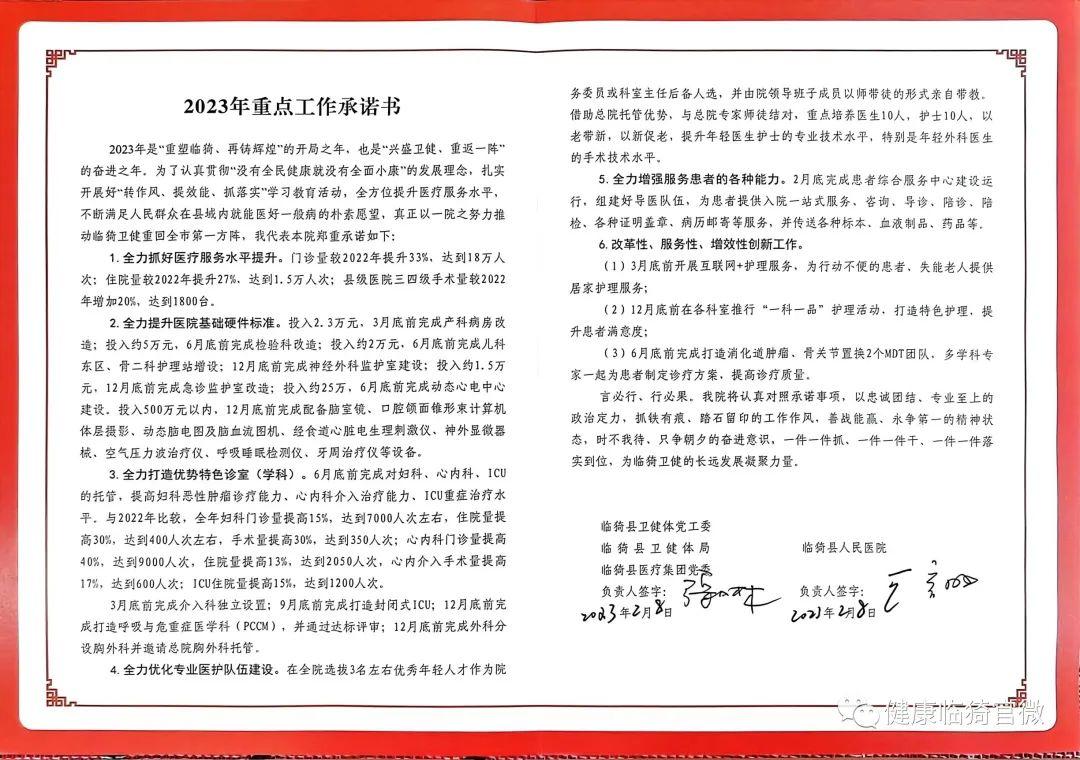 2023年重点工作承诺书
2023年是“重塑临猗、再铸辉煌”的开局之年，也是“兴盛卫健、重返一阵”
的奋进之年。为了认真贯彻“没有全民健康就没有全面小康”的发展理念，扎实
开展好“转作风、提效能、抓落实”学习教育活动，全方位提升医疗服务水平，
不断满足人民群众在县域内就能医好一般病的朴素愿望，真正以一院之努力推
动临猗卫健重回全市第一方阵，我代表本院郑重承诺如下：
1.全力抓好医疗服务水平提升。门诊量较2022年提升33%，达到18万人
次；住院量较2022年提升27%，达到1.5万人次；县级医院三四级手术量较2022
年增加20%，达到1800台。
2.全力提升医院基础硬件标准。投入2.3万元，3月底前完成产科病房改
造；投入约5万元，6月底前完成检验科改造；投入约2万元，6月底前完成儿科
东区、骨二科护理站增设；12月底前完成神经外科监护室建设；投入约1.5万
元，12月底前完成急诊监护室改造；投入约25万，6月底前完成动态心电中心
建设。投入500万元以内，12月底前完成配备脑室镜、口腔颌面锥形束计算机
体层摄影、动态脑电图及脑血流图机、经食道心脏电生理刺激仪、神外显微器
械、空气压力波治疗仪、呼吸睡眠检测仪、牙周治疗仪等设备。
3.全力打造优势特色诊室（学科）。6月底前完成对妇科、心内科、ICU
的托管，提高妇科恶性肿瘤诊疗能力、心内科介入治疗能力、ICU重症治疗水
平。与2022年比较，全年妇科门诊量提高15%，达到7000人次左右，住院量提
高30%，达到400人次左右，手术量提高30%，达到350人次；心内科门诊量提高
40%，达到9000人次，住院量提高13%，达到2050人次，心内介入手术量提高
17%，达到600人次；ICU住院量提高15%，达到1200人次。
3月底前完成介入科独立设置；9月底前完成打造封闭式ICU；12月底前完
成打造呼吸与危重症医学科（PCCM），并通过达标评审；12月底前完成外科分
设胸外科并邀请总院胸外科托管。
4.全力优化专业医护队伍建设。在全院选拔3名左右优秀年轻人才作为院
务委员或科室主任后备人选，并由院领导班子成员以师带徒的形式亲自带教。
借助总院托管优势，与总院专家师徒结对，重点培养医生10人，护士10人，以
老带新，以新促老，提升年轻医生护士的专业技术水平，特别是年轻外科医生
的手术技术水平。
5.全力增强服务患者的各种能力。2月底完成患者综合服务中心建设运
行，组建好导医队伍，为患者提供入院一站式服务、咨询、导诊、陪诊、陪
检、各种证明盖章、病历邮寄等服务，并传送各种标本、血液制品、药品等。
6.改革性、服务性、增效性创新工作。
（1）3月底前开展互联网+护理服务，为行动不便的患者、失能老人提供
居家护理服务；
（2）12月底前在各科室推行“一科一品”护理活动，打造特色护理，提
升患者满意度；
（3）6月底前完成打造消化道肿瘤、骨关节置换2个MDT团队，多学科专
家一起为患者制定诊疗方案，提高诊疗质量。
言必行、行必果。我院将认真对照承诺事项，以忠诚团结、专业至上的
政治定力，抓铁有痕、踏石留印的工作作风，善战能赢、永争第一的精神状
态，时不我待、只争朝夕的奋进意识，一件一件抓、一件一件干、一件一件落
实到位，为临猗卫健的长远发展凝聚力量。
临猗县卫健体党工委
临猗县卫健体局
临猗县医疗集团党委
负责人签字：
2023年2月8日
临猗县人民医院
负责人签字：
2023年2月8日
健康临猗官微